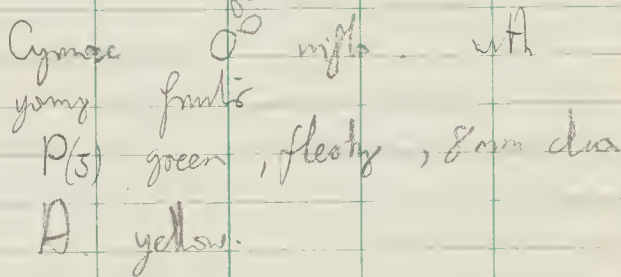 Cymose ♂ infls. with
young fruits
P(5) green, fleshy, 8mm diam
A yellow.